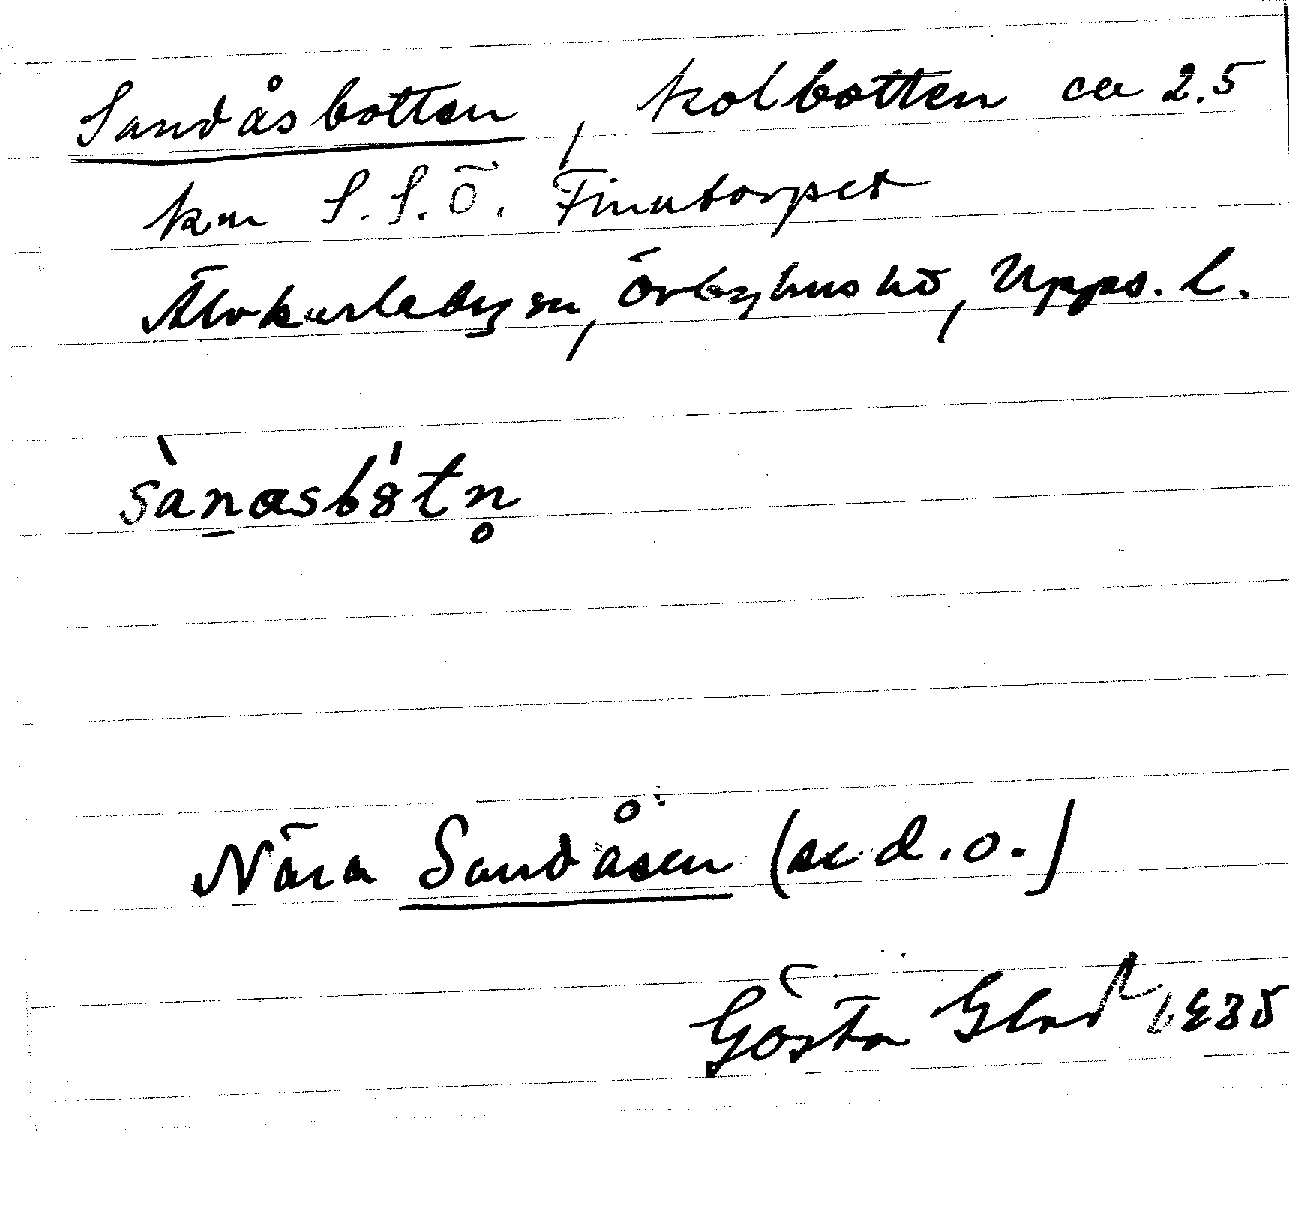 Sandåsbotten, kolbotten ca 2.5
km S.S.Ö. Finntorpet
Älvkarleby sn, Örbyhus hd, Upps. l.
sànasbåtn̥
Nära Sandåsen (se d.o.)
Gösta Glad 1935